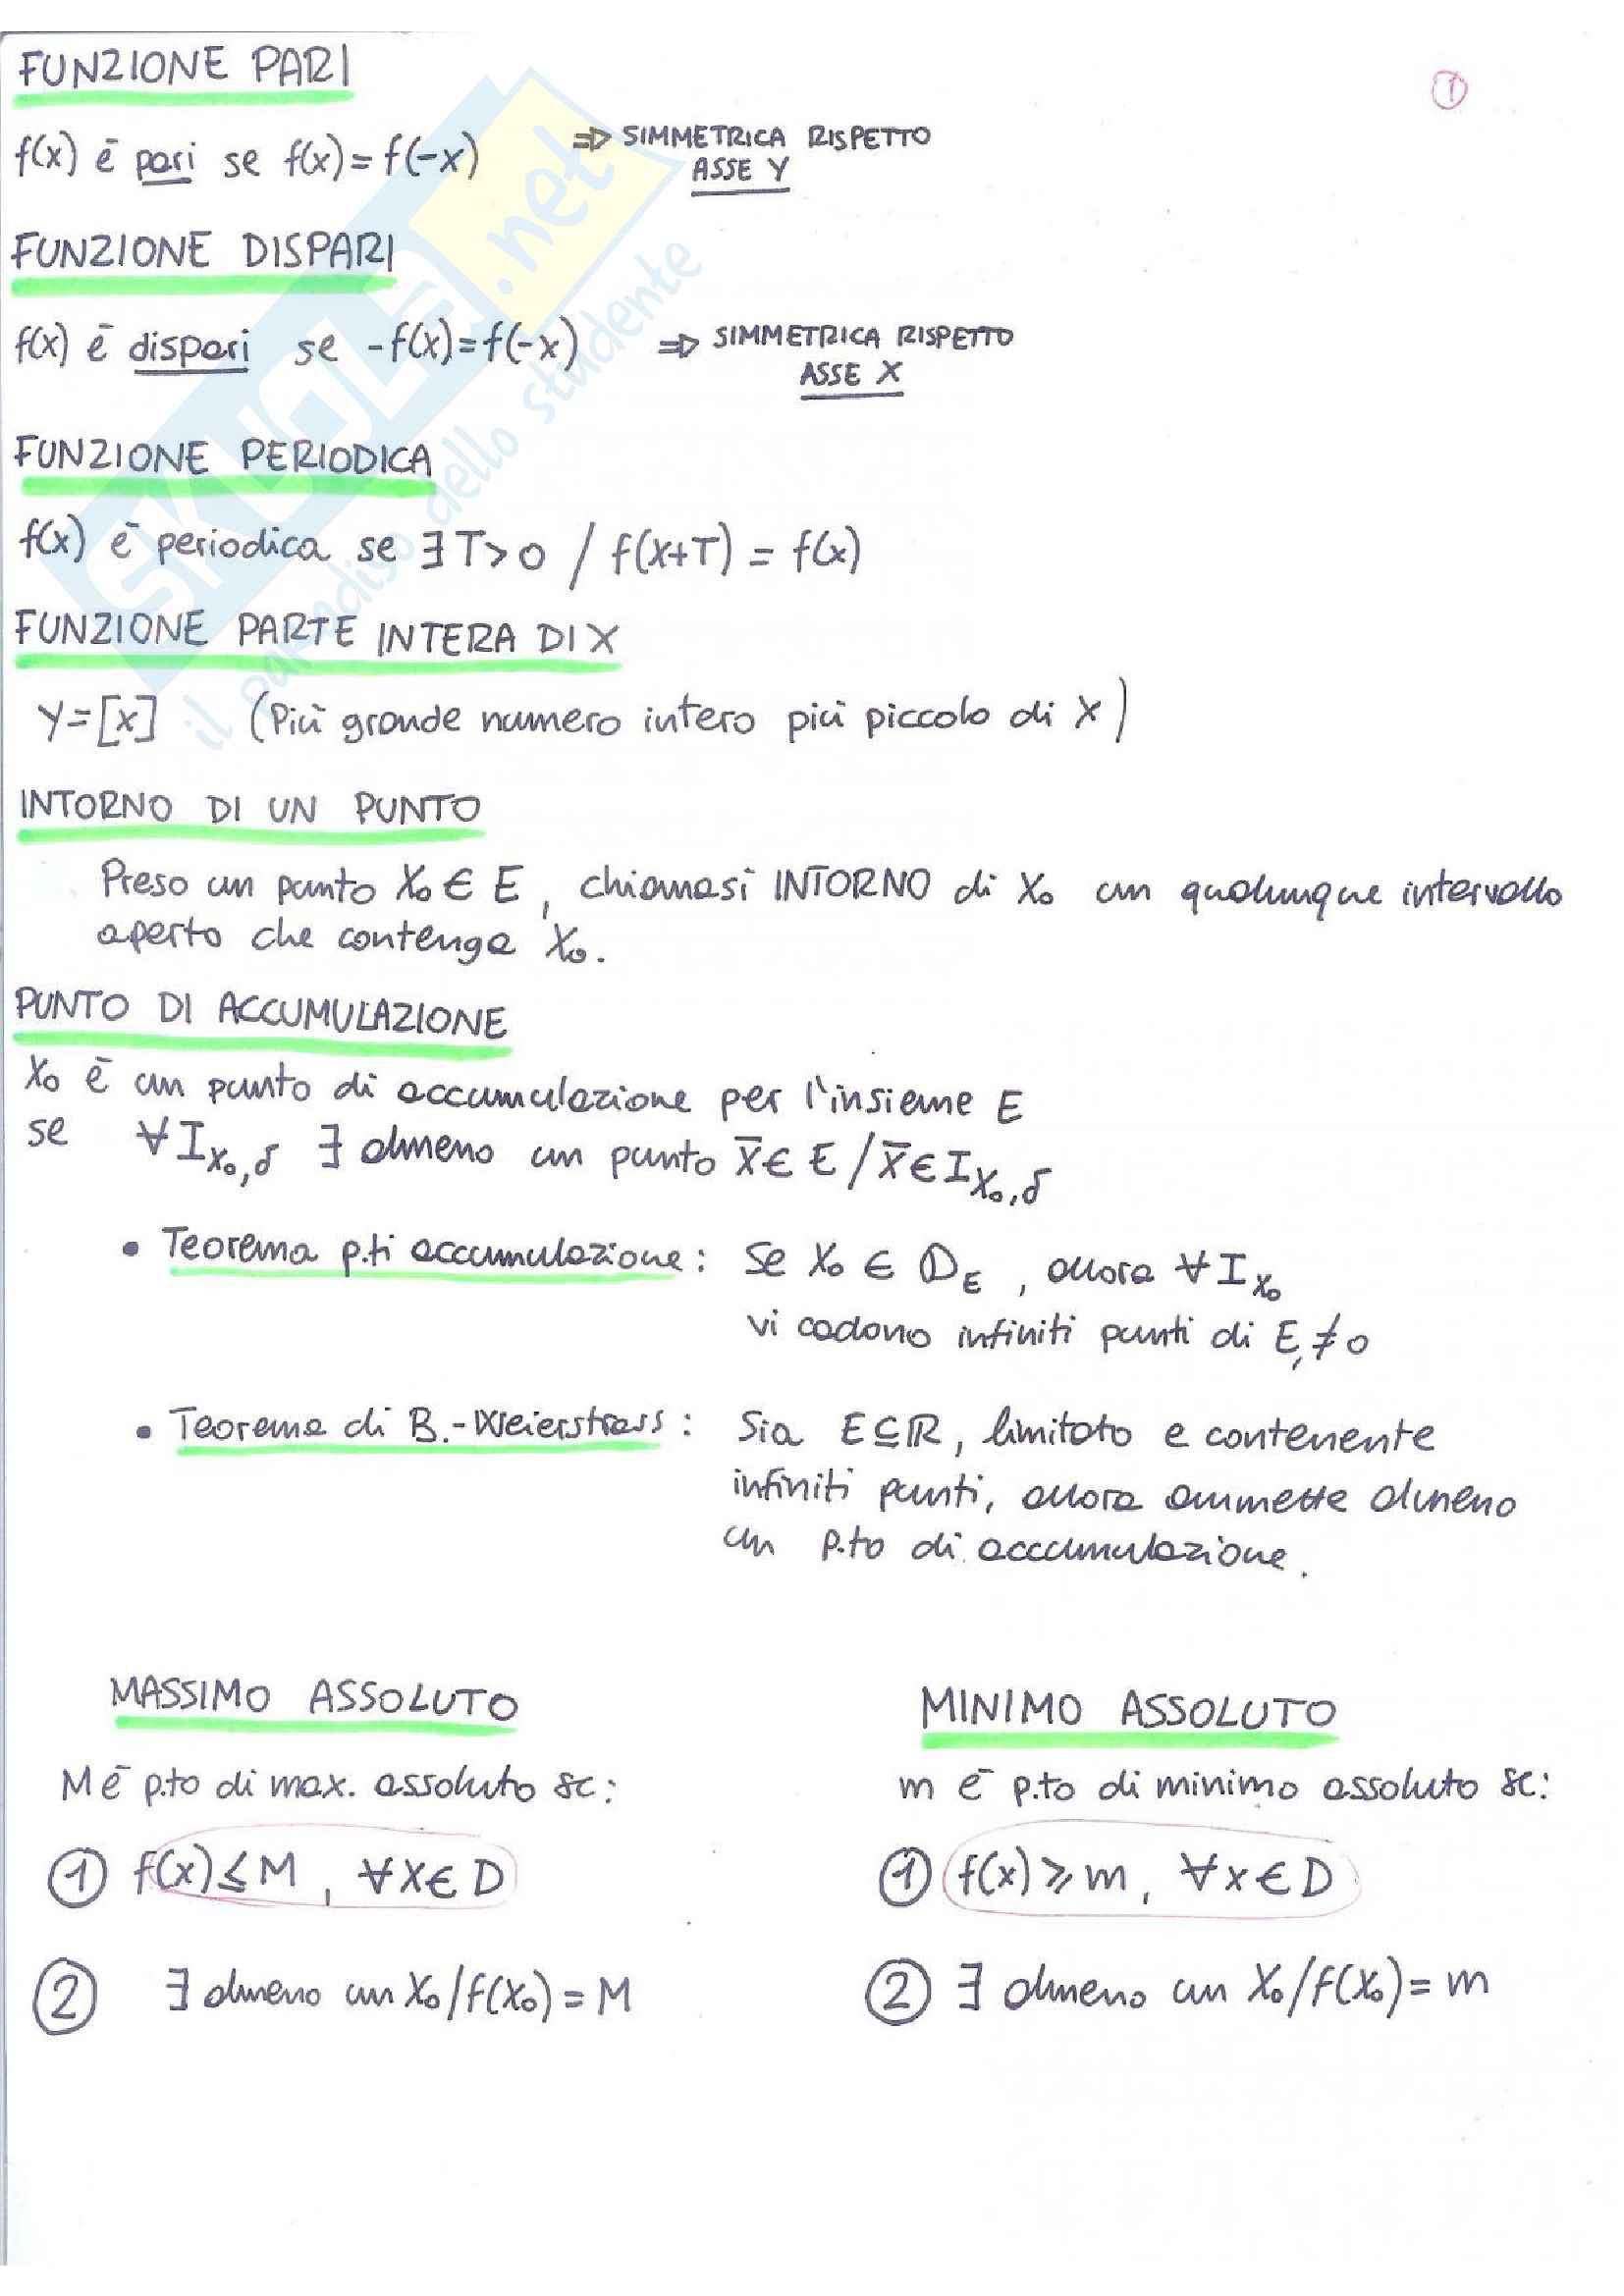 FUNZIONE PARI
①
f(x) è pari se f(x)=f(-x) ⇒ SIMMETRICA RISPETTO
ASSE Y
FUNZIONE DISPARI
f(x) è dispari se -f(x)=f(-x) ⇒ SIMMETRICA RISPETTO
ASSE X
FUNZIONE PERIODICA
f(x) è periodica se ∃ T>0 / f(x+T) = f(x)
FUNZIONE PARTE INTERA DI X
Y=[x] (Più grande numero intero più piccolo di X)
INTORNO DI UN PUNTO
Preso un punto X₀ ∈ E, chiamasi INTORNO di X₀ un qualunque intervallo
aperto che contenga X₀.
PUNTO DI ACCUMULAZIONE
X₀ è un punto di accumulazione per l'insieme E
se ∀ I_{X₀,δ} ∃ almeno un punto x̄ ∈ E / x̄ ∈ I_{X₀,δ}
• Teorema p.ti accumulazione: Se X₀ ∈ D_E, allora ∀ I_{X₀}
vi cadono infiniti punti di E, ≠ 0
• Teorema di B.-Weierstrass: Sia E ⊆ ℝ, limitato e contenente
infiniti punti, allora ammette almeno
un p.to di accumulazione.
MASSIMO ASSOLUTO
M è p.to di max. assoluto se:
① f(x) ≤ M, ∀ X ∈ D
② ∃ almeno un X₀ / f(X₀) = M
MINIMO ASSOLUTO
m è p.to di minimo assoluto se:
① f(x) ⩾ m, ∀ x ∈ D
② ∃ almeno un X₀ / f(X₀) = m
SKUOLA.net
il paradiso dello studente